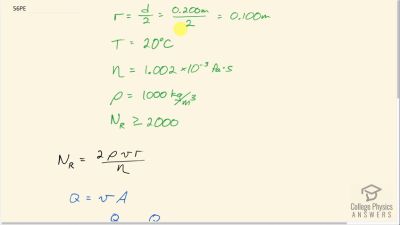 56PE
r = d/2 = 0.200m/2 = 0.100m
T = 20°C
η = 1.002 × 10⁻³ Pa·s
ρ = 1000 kg/m³
N_R ≥ 2000
N_R = 2ρvr/η
Q = vA
Q Q
College Physics
ANSWERS